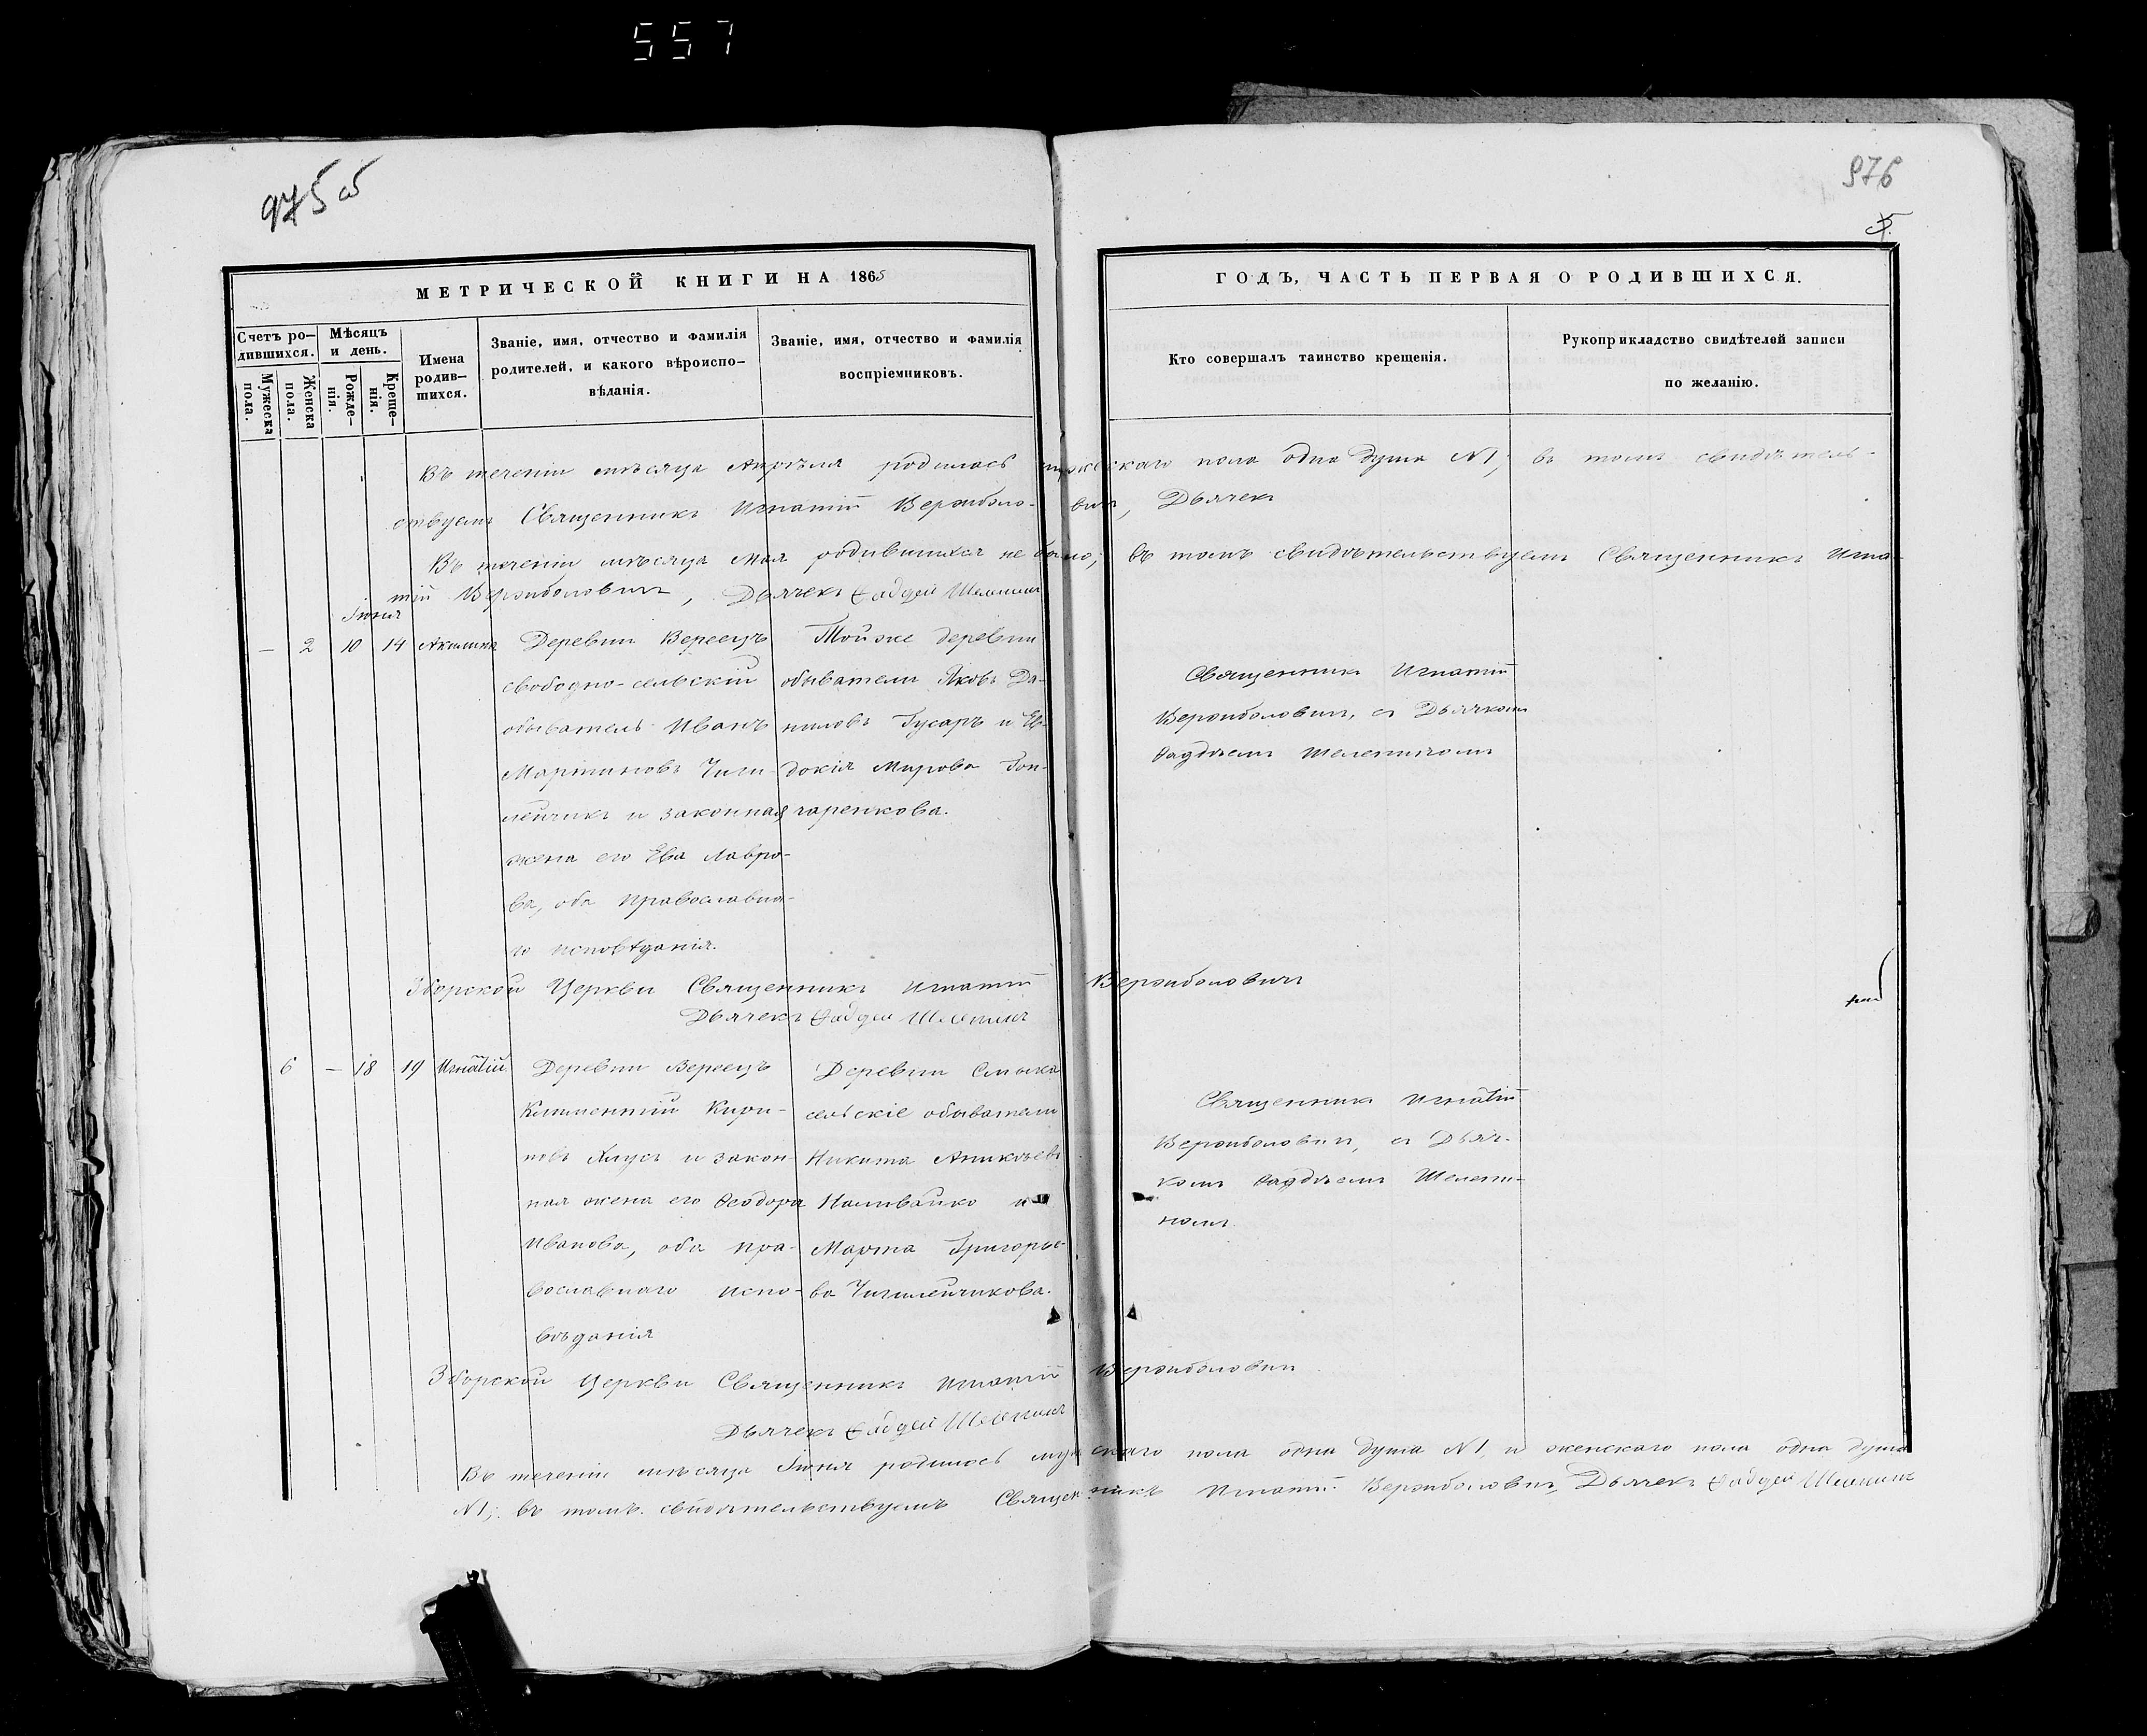 557
975 об
976
5.
МЕТРИЧЕСКОЙ КНИГИ НА 1865
ГОДЪ, ЧАСТЬ ПЕРВАЯ О РОДИВШИХСЯ.
Счетъ ро-
дившихся.
Мужеска
пола.
Женска
пола.
Мѣсяцъ
и день.
Рожде-
нія.
Креще-
нія.
Имена
родив-
шихся.
Званіе, имя, отчество и фамилія
родителей, и какого вѣроиспо-
вѣданія.
Званіе, имя, отчество и фамилія
воспріемниковъ.
Кто совершалъ таинство крещенія.
Рукоприкладство свидѣтелей записи
по желанію.
Въ теченіи мѣсяца Апрѣля родилось мужескаго пола одна душа №1, въ томъ свидѣтель-
ствуемъ Священникъ Игнатій Верзиболо- вичъ, Дьячекъ
Въ теченіи мѣсяца Мая родившихся не было; въ томъ свидѣтельствуемъ Священникъ Игна-
тій Верзиболовичъ, Дьячекъ Фаддей
Іюня
— 2 10 14 Акилина
Деревни Вереецъ
свободно-сельскій
обыватель Иванъ
Мартиновъ Чиги-
лейчикъ и законная
жена его Ева Лавро-
ва, оба православна-
го исповѣданія.
Тойже деревни
обыватели Яковъ Да-
ниловъ Гусаръ и Ев-
докія Мирова Гон-
чаренкова.
Священникъ Игнатій
Верзиболовичъ, съ Дьячкомъ
Фаддѣемъ
Зборской Церкви Священникъ Игнатій Верзиболовичъ
Дьячекъ Фаддей
6 — 18 19 Игнатій
Деревни Вереецъ
Климентій Кири-
новъ и закон-
ная жена его Ѳеодора
Иванова, оба пра-
вославнаго испо-
вѣданія
Деревни
сельскіе обыватели
Никита Аникѣевъ
Наливайко и
Марта Григорье-
ва Чигилейчикова.
Священникъ Игнатій
Верзиболовичъ, съ Дьяч-
комъ Фаддѣемъ
Зборской Церкви Священникъ Игнатій Верзиболовичъ
Дьячекъ Фаддей
Въ теченіи мѣсяца Іюня родилось мужскаго пола одна душа №1, и женскаго пола одна душа
№1; въ томъ свидѣтельствуемъ Священникъ Игнатій Верзиболовичъ, Дьячекъ Фаддей